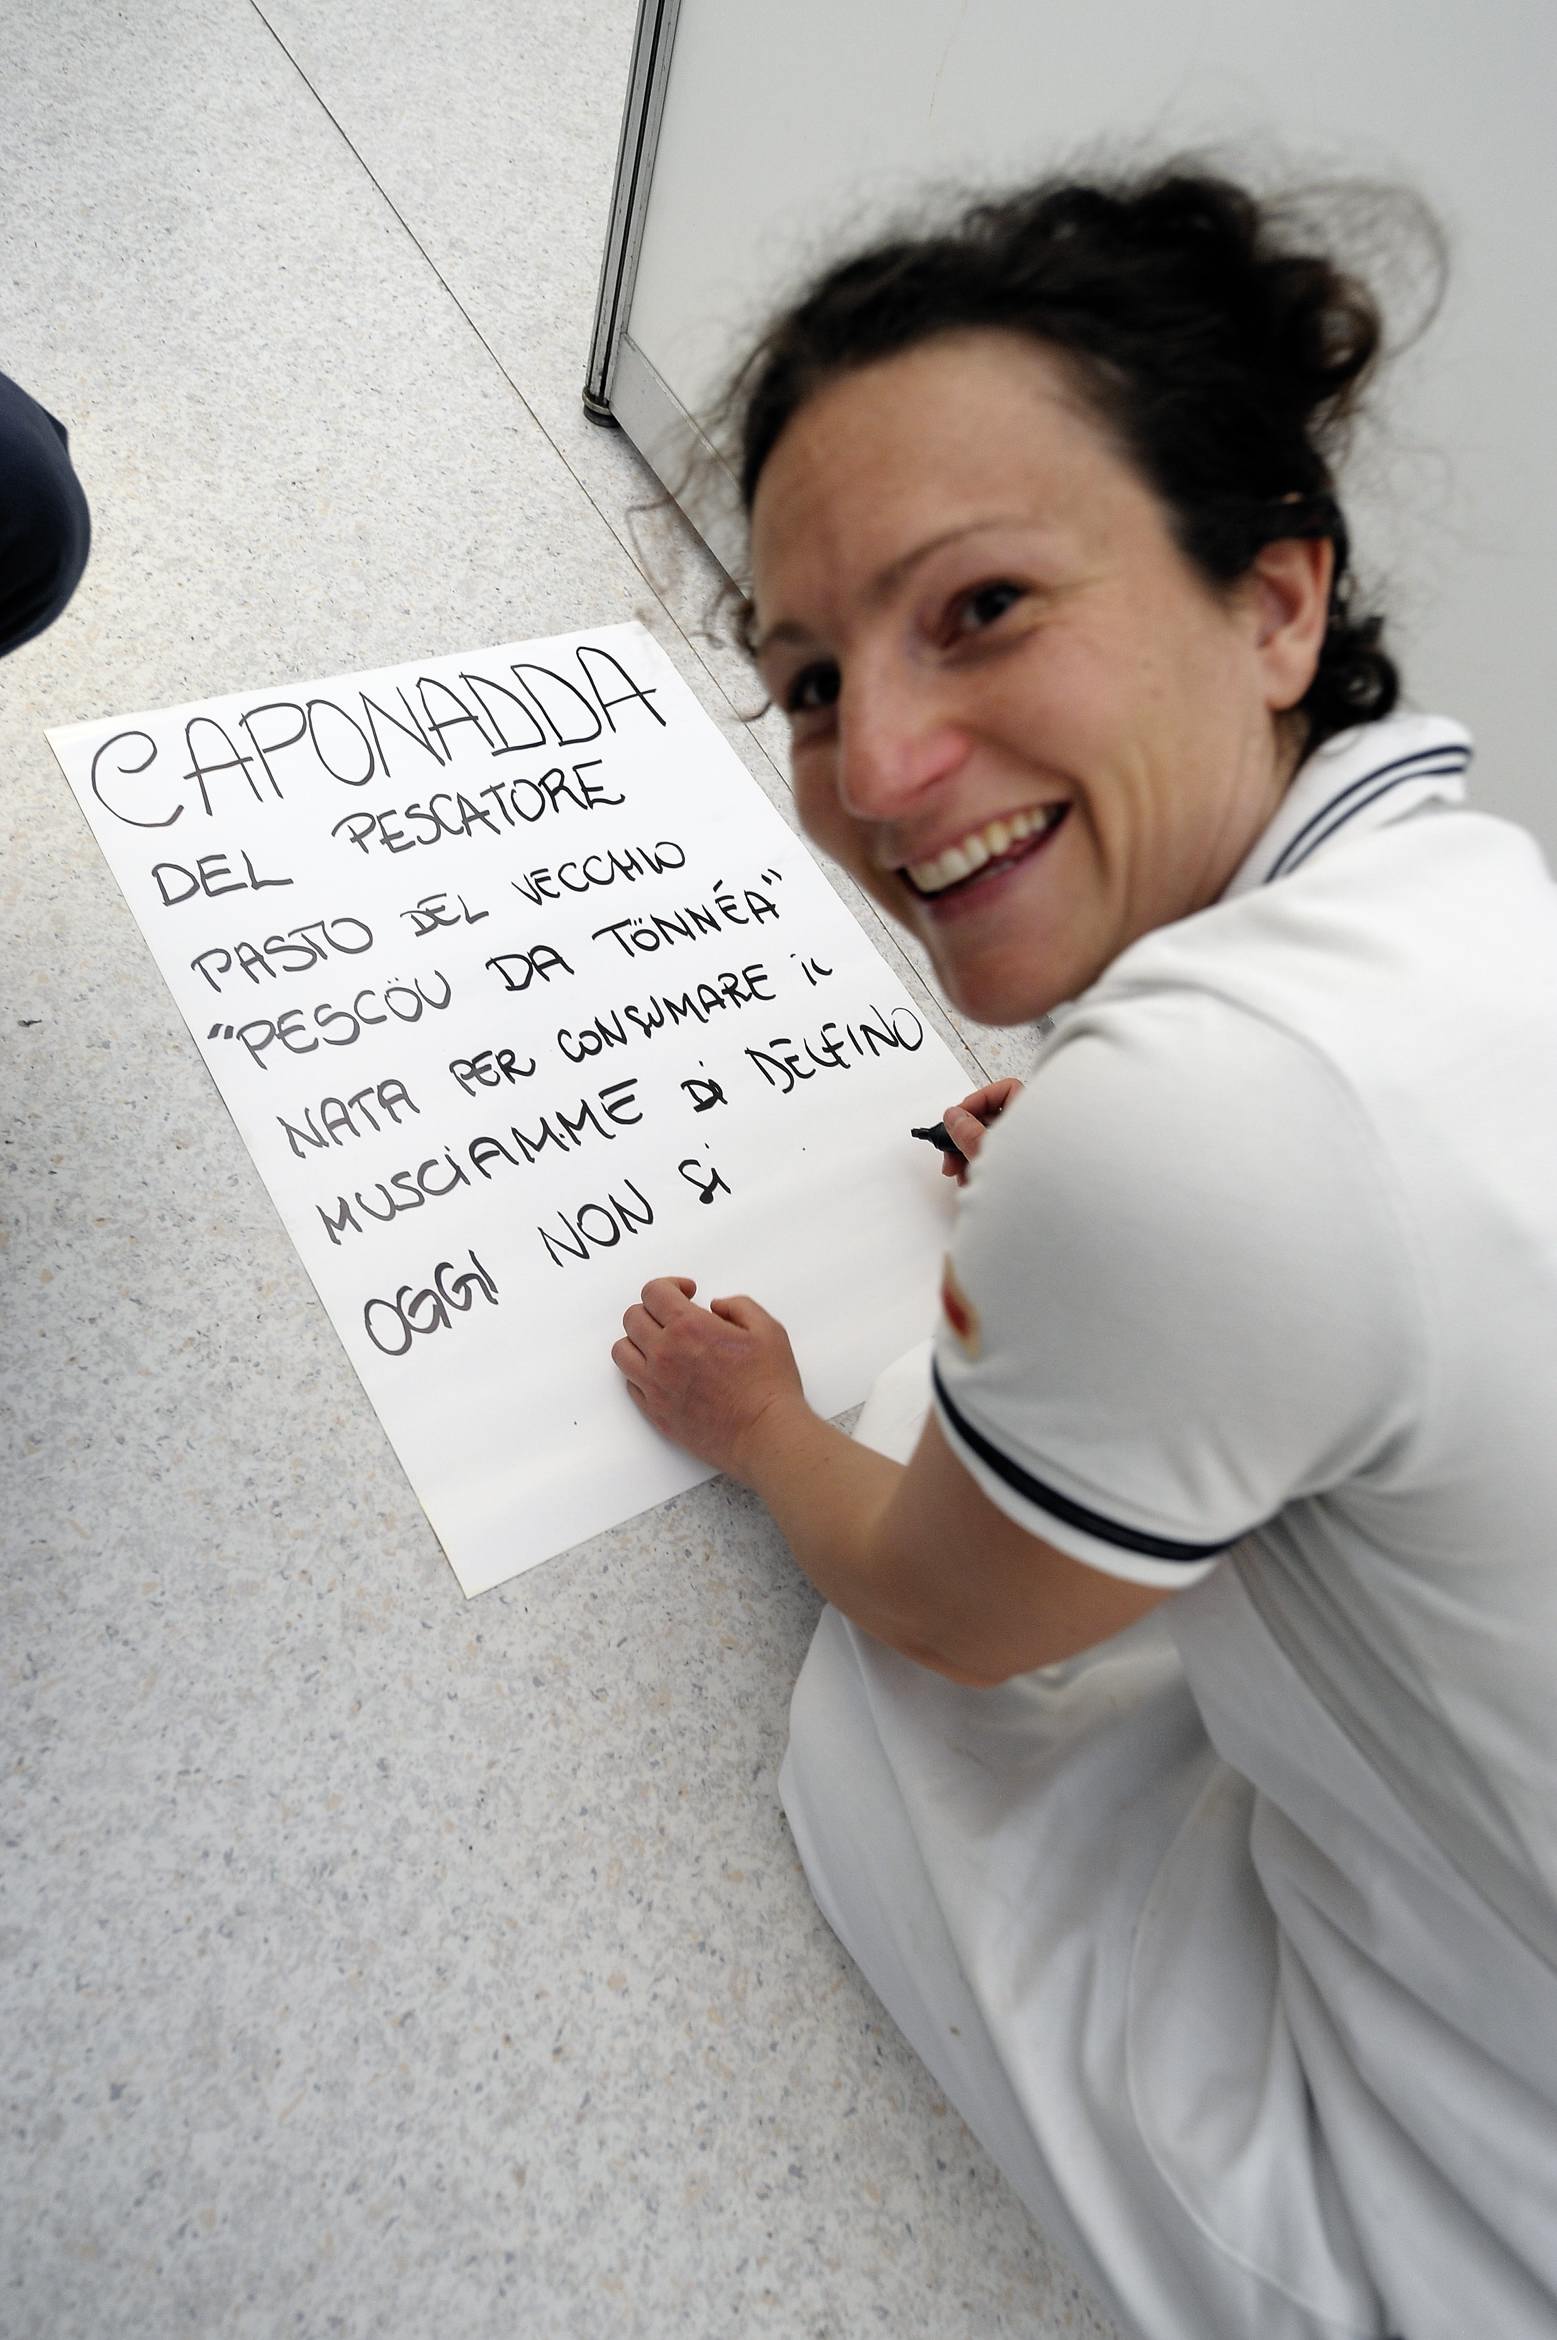 CAPONADDA
DEL PESCATORE
PASTO DEL VECCHIO
"PESCÖU DA TÖNNÉA"
NATA PER CONSUMARE iL
MUSCiAMME Di DELFINO
OGGI NON Si